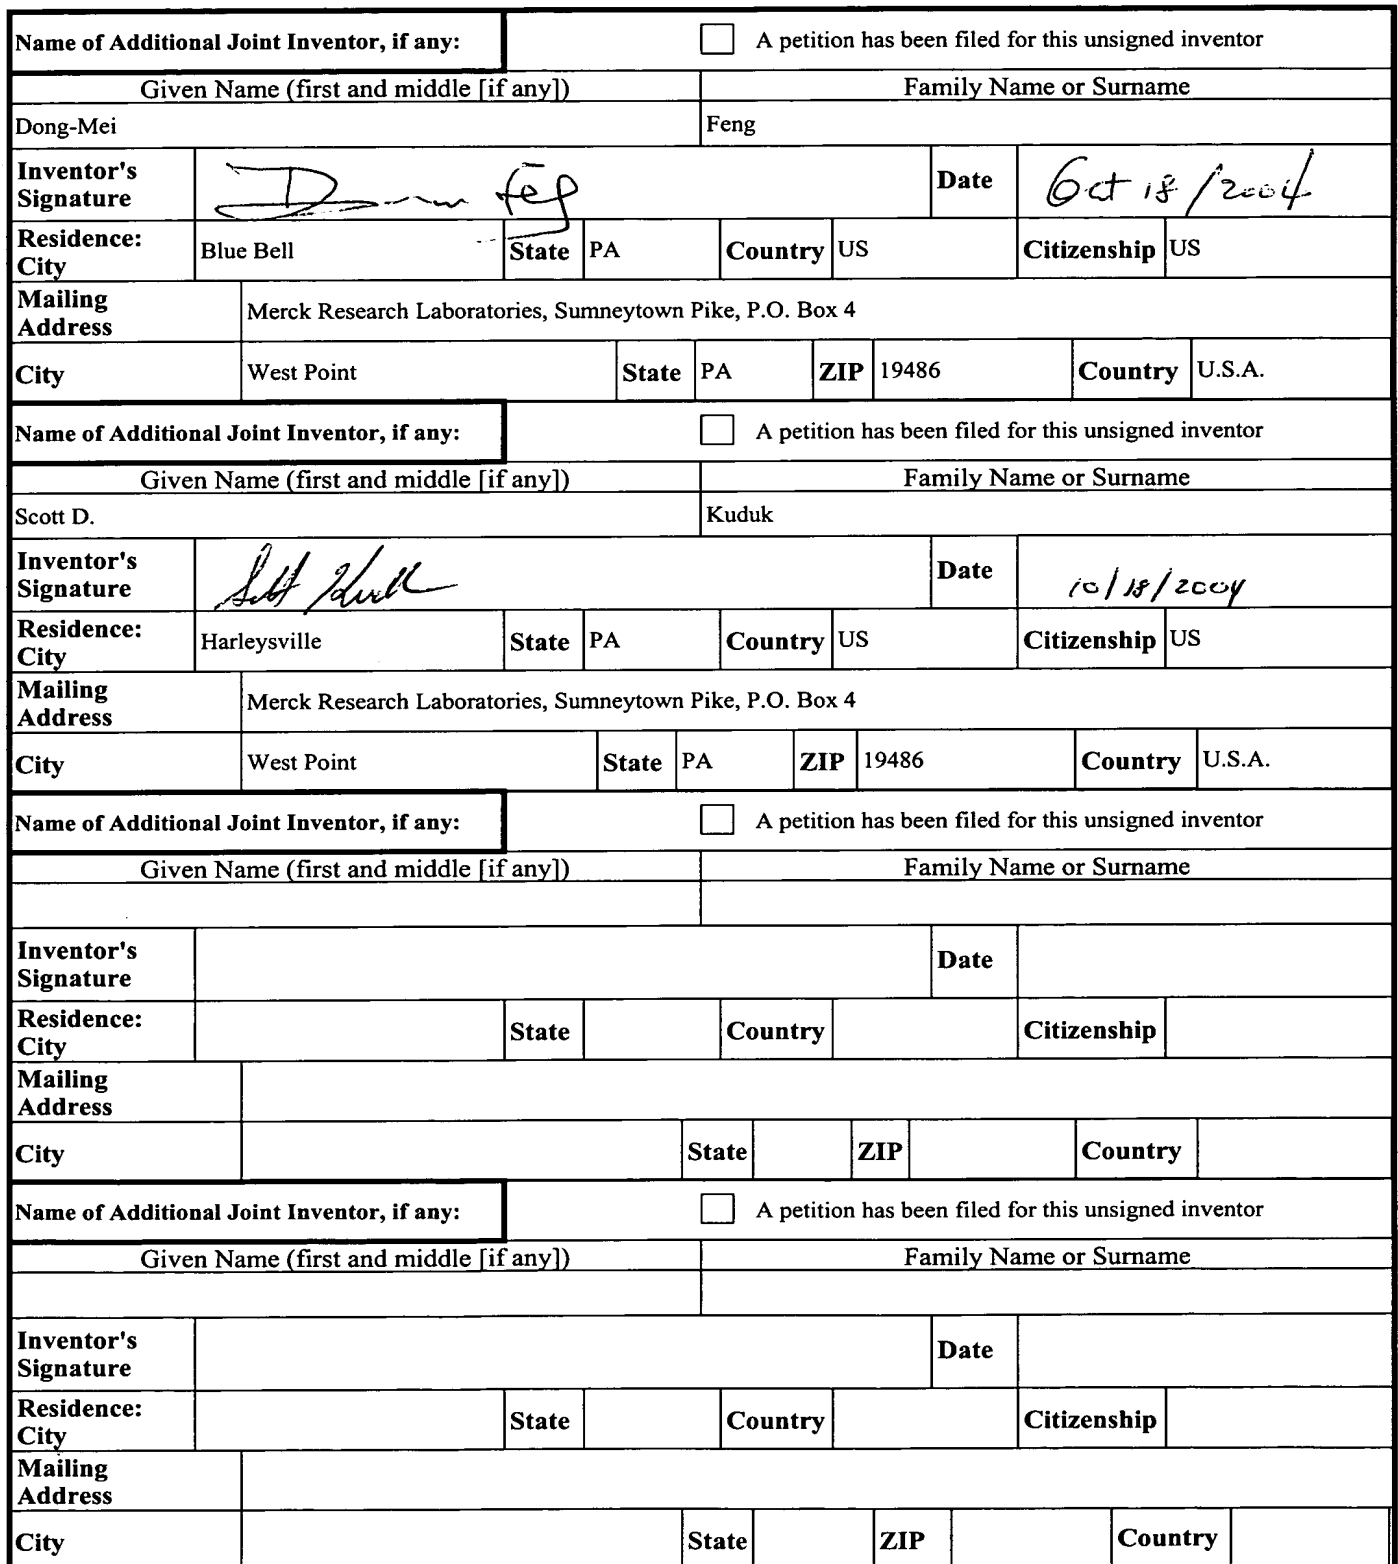 Name of Additional Joint Inventor, if any: A petition has been filed for this unsigned inventor
Given Name (first and middle [if any]) Family Name or Surname
Dong-Mei Feng
Inventor's Signature Date Oct 18/2004
Residence: City Blue Bell State PA Country US Citizenship US
Mailing Address Merck Research Laboratories, Sumneytown Pike, P.O. Box 4
City West Point State PA ZIP 19486 Country U.S.A.
Name of Additional Joint Inventor, if any: A petition has been filed for this unsigned inventor
Given Name (first and middle [if any]) Family Name or Surname
Scott D. Kuduk
Inventor's Signature Date 10/18/2004
Residence: City Harleysville State PA Country US Citizenship US
Mailing Address Merck Research Laboratories, Sumneytown Pike, P.O. Box 4
City West Point State PA ZIP 19486 Country U.S.A.
Name of Additional Joint Inventor, if any: A petition has been filed for this unsigned inventor
Given Name (first and middle [if any]) Family Name or Surname
Inventor's Signature Date
Residence: City State Country Citizenship
Mailing Address
City State ZIP Country
Name of Additional Joint Inventor, if any: A petition has been filed for this unsigned inventor
Given Name (first and middle [if any]) Family Name or Surname
Inventor's Signature Date
Residence: City State Country Citizenship
Mailing Address
City State ZIP Country